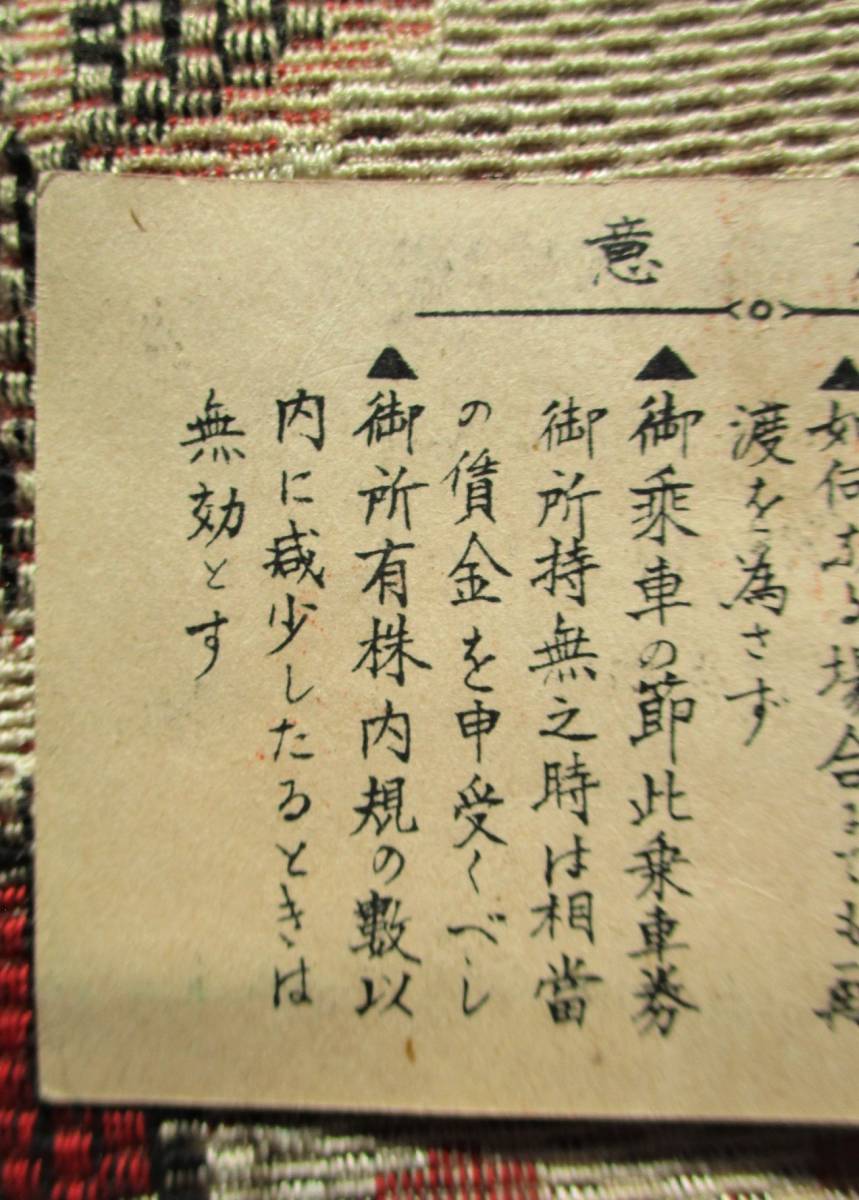 意
▲如何なる場合にても再
渡を為さず
▲御乗車の節此乗車券
御所持無之時は相當
の賃金を申受くべし
▲御所有株内規の數以
内に減少したるときは
無効とす